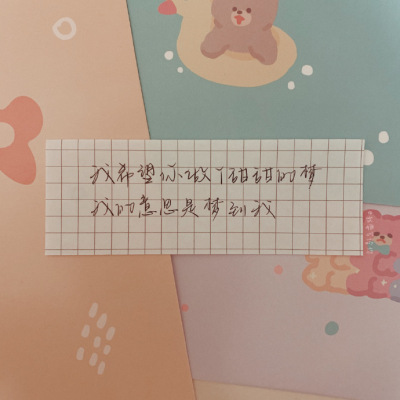 我希望你做丫甜甜的梦
我的意思是梦到我